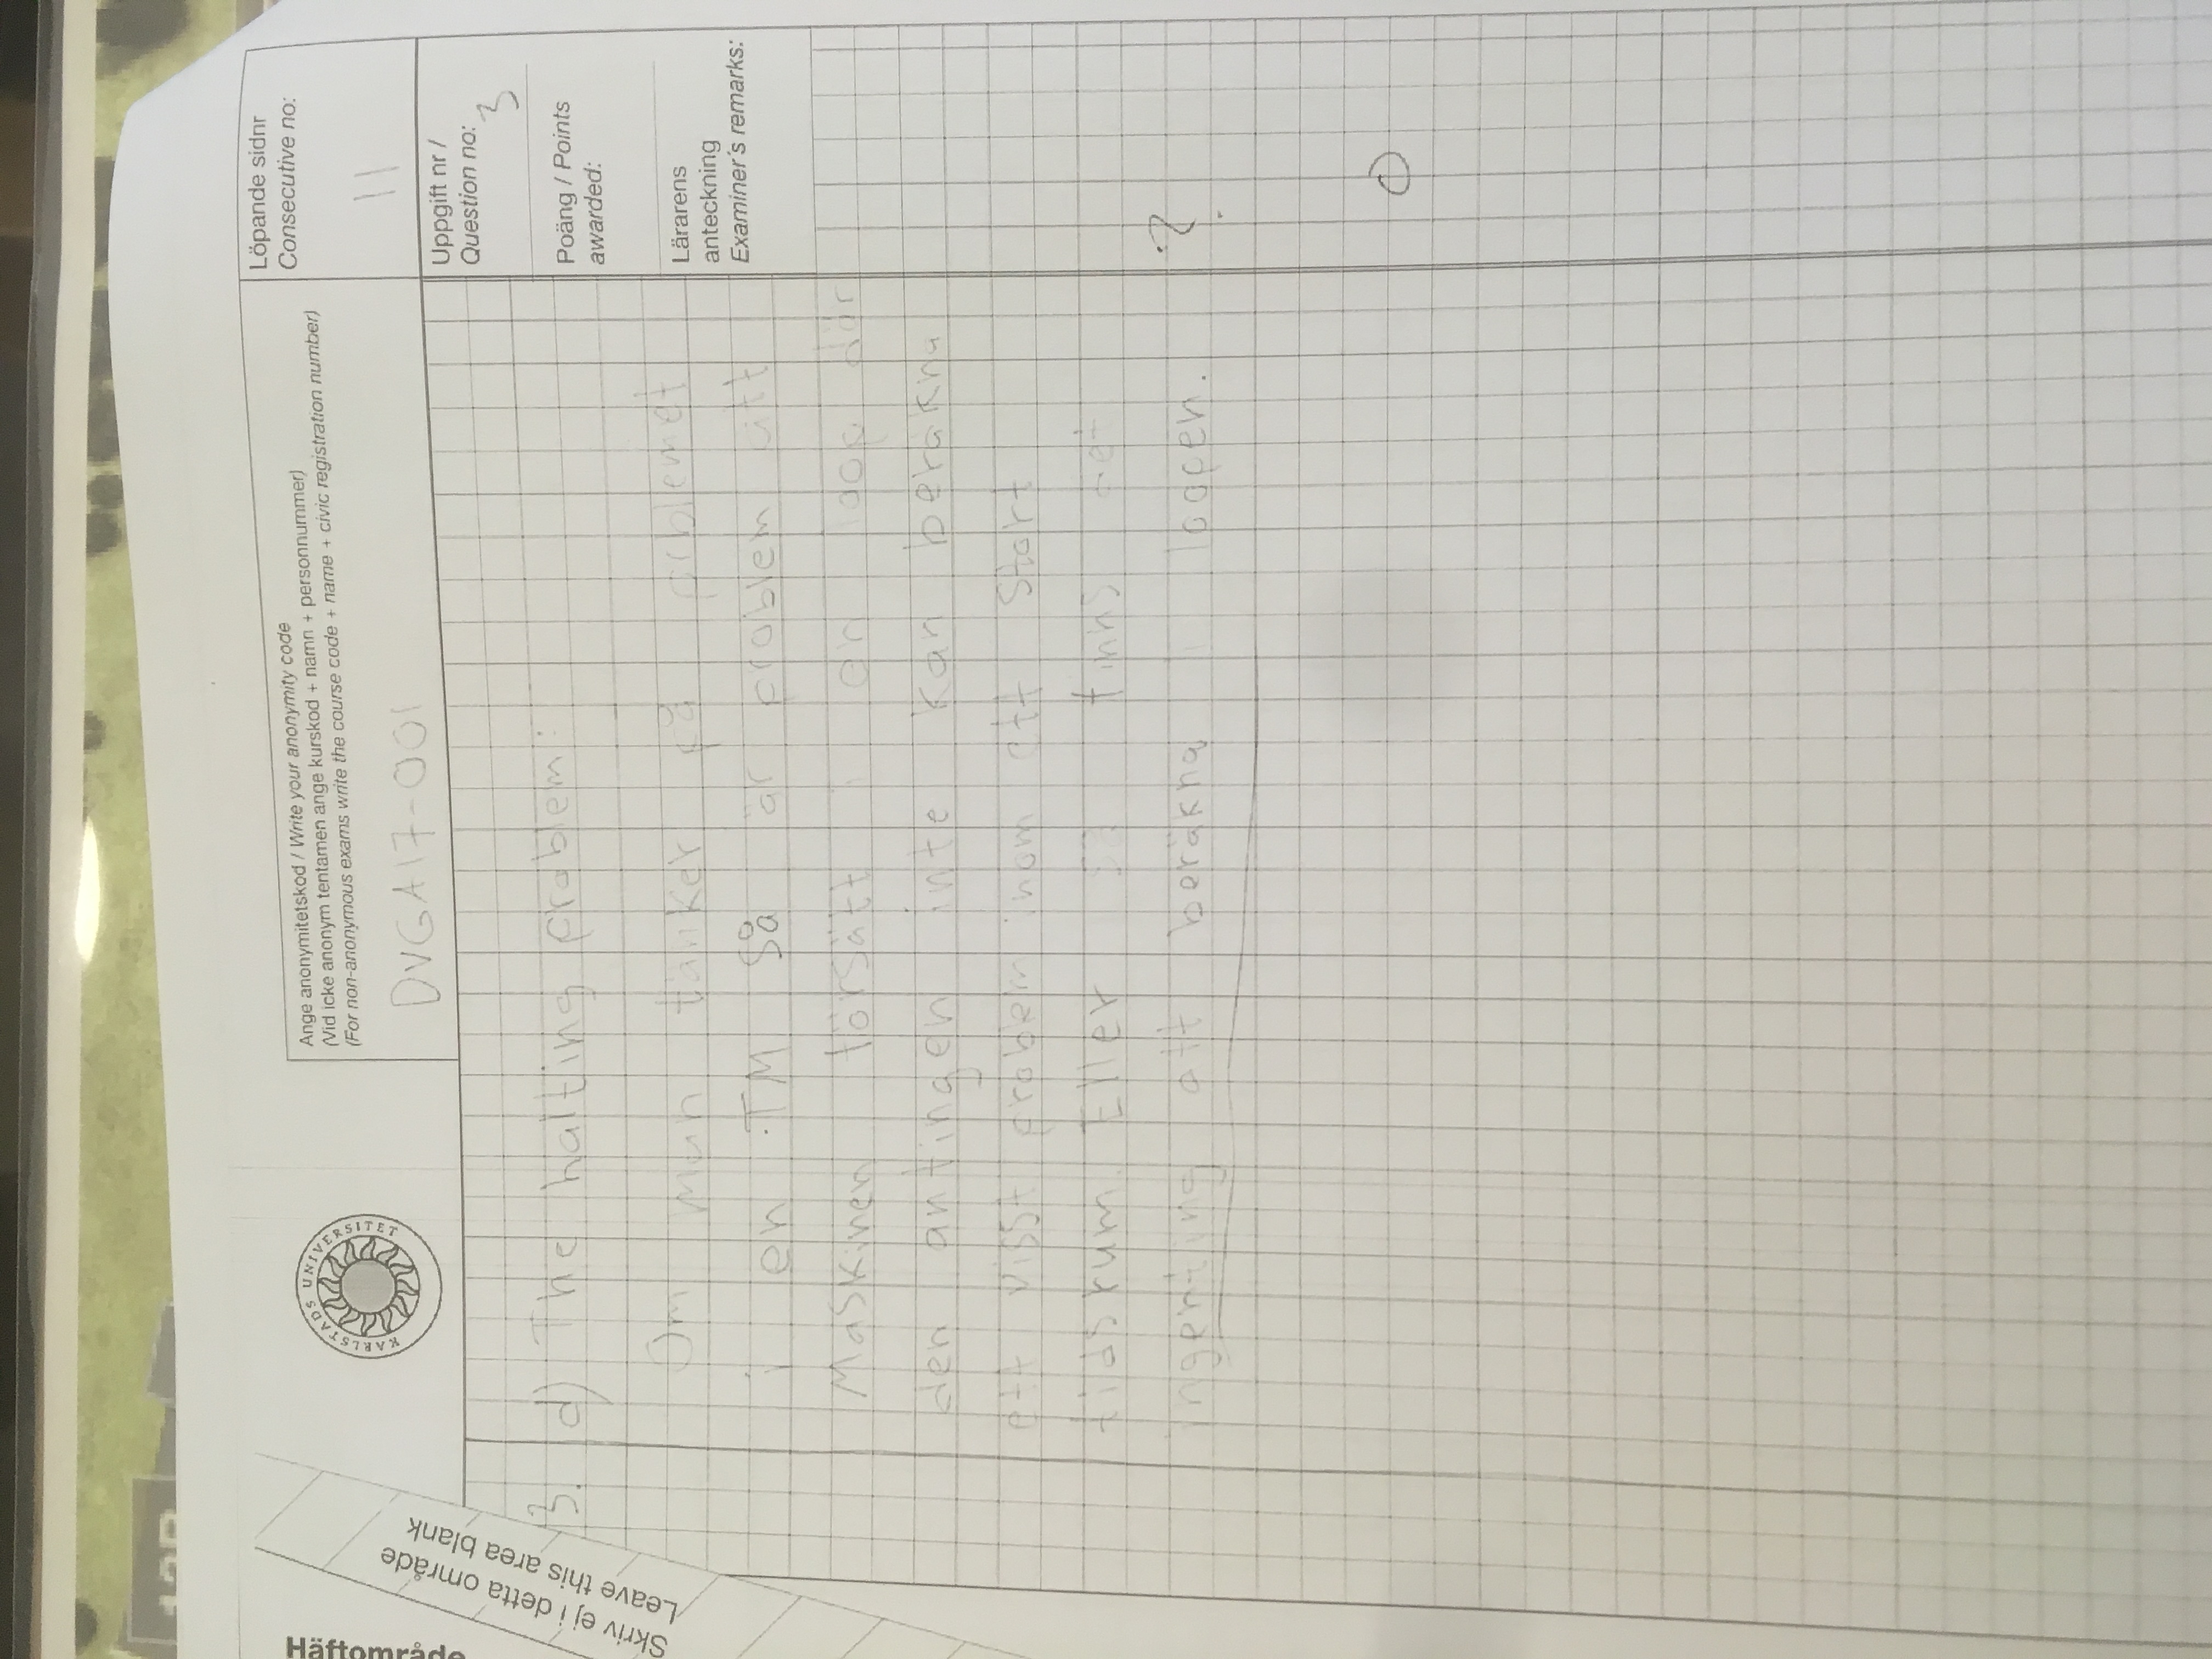 13B
Häftområde
Skriv ej i detta område
Leave this area blank
KARLSTADS UNIVERSITET
Ange anonymitetskod / Write your anonymity code
(Vid icke anonym tentamen ange kurskod + namn + personnummer)
(For non-anonymous exams write the course code + name + civic registration number)
DVGA17-001
Löpande sidnr
Consecutive no:
11
Uppgift nr /
Question no:
3
Poäng / Points
awarded:
Lärarens
anteckning
Examiner's remarks:
3. d) The halting problem:
Om man tänker på prblemet
i en TM så är problem att
Maskinen försätt i en loop där
den antingen inte kan beräkna
ett visst problem inom ett Stort
tidsrum. Eller så finns det
ingenting att beräkna i loopen. ?
0